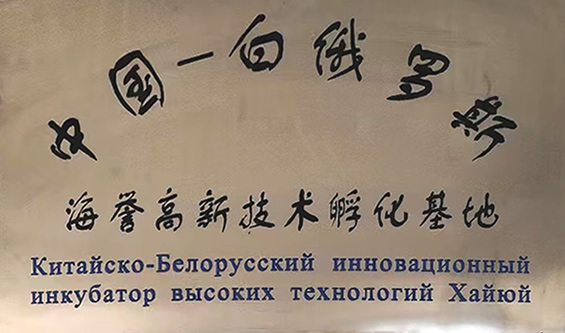 中国一白俄罗斯
海誉高新技术孵化基地
Китайско-Белорусский инновационный
инкубатор высоких технологий Хайюй